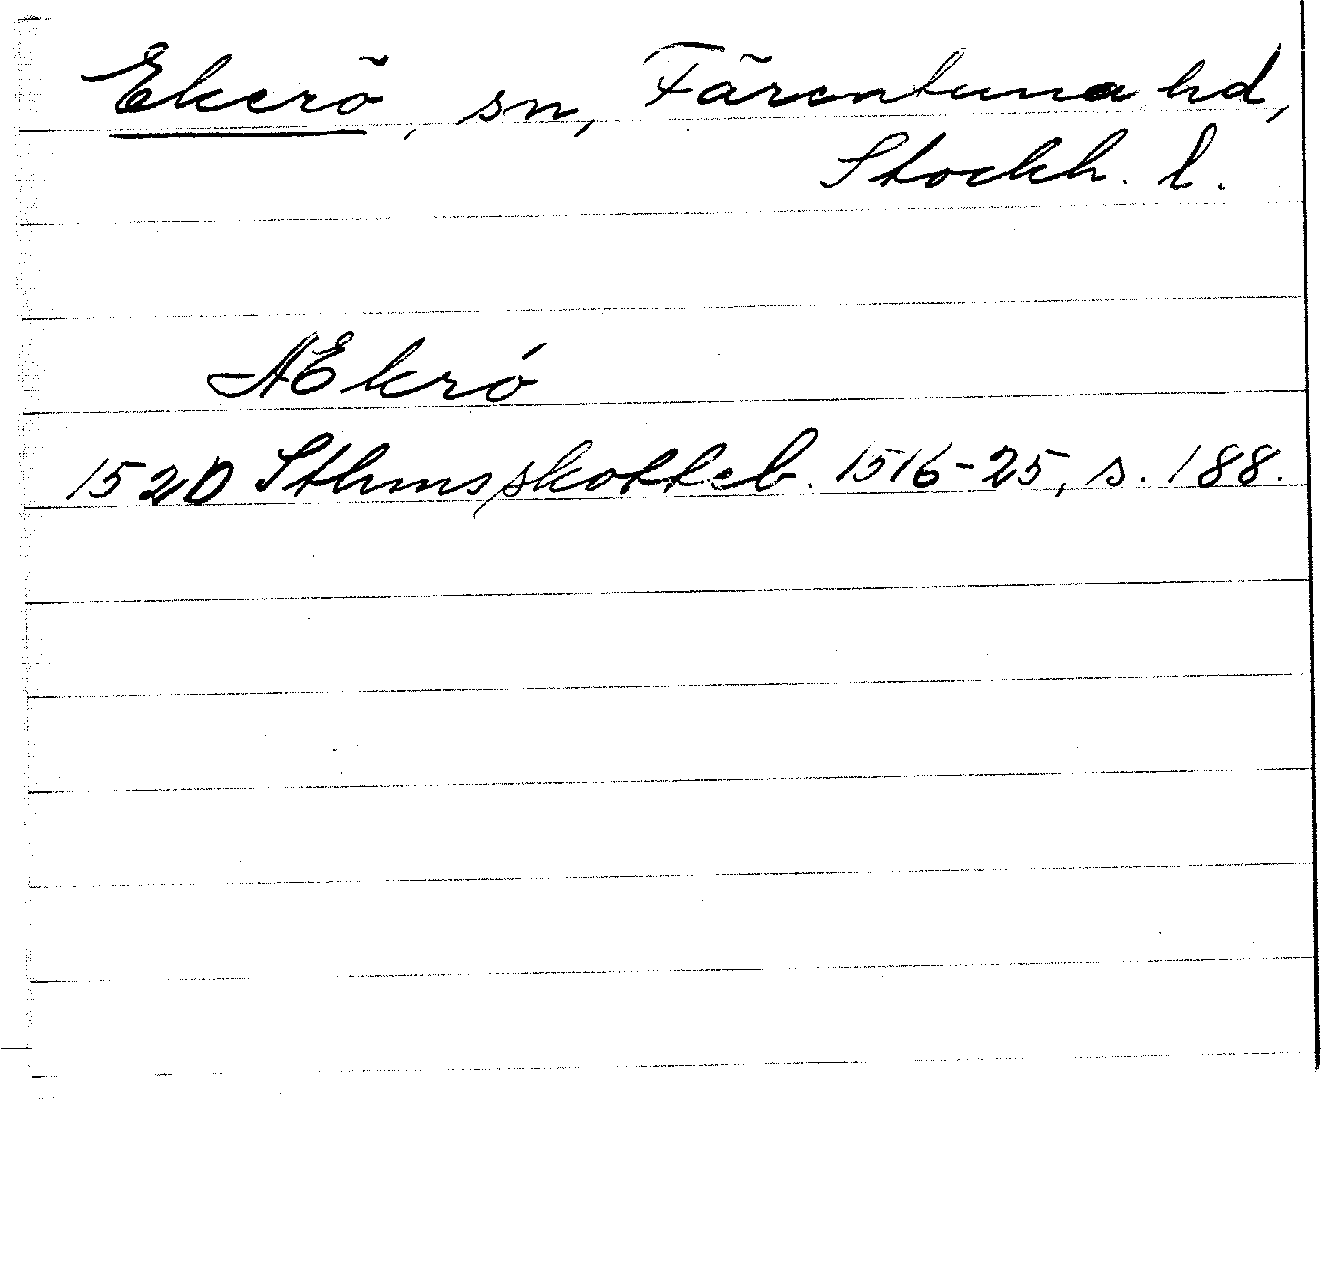 Ekerö, sn, Färentuna hd,
Stockh. l.
Ækró
1520 Sthms skotteb. 1516-25, s. 188.